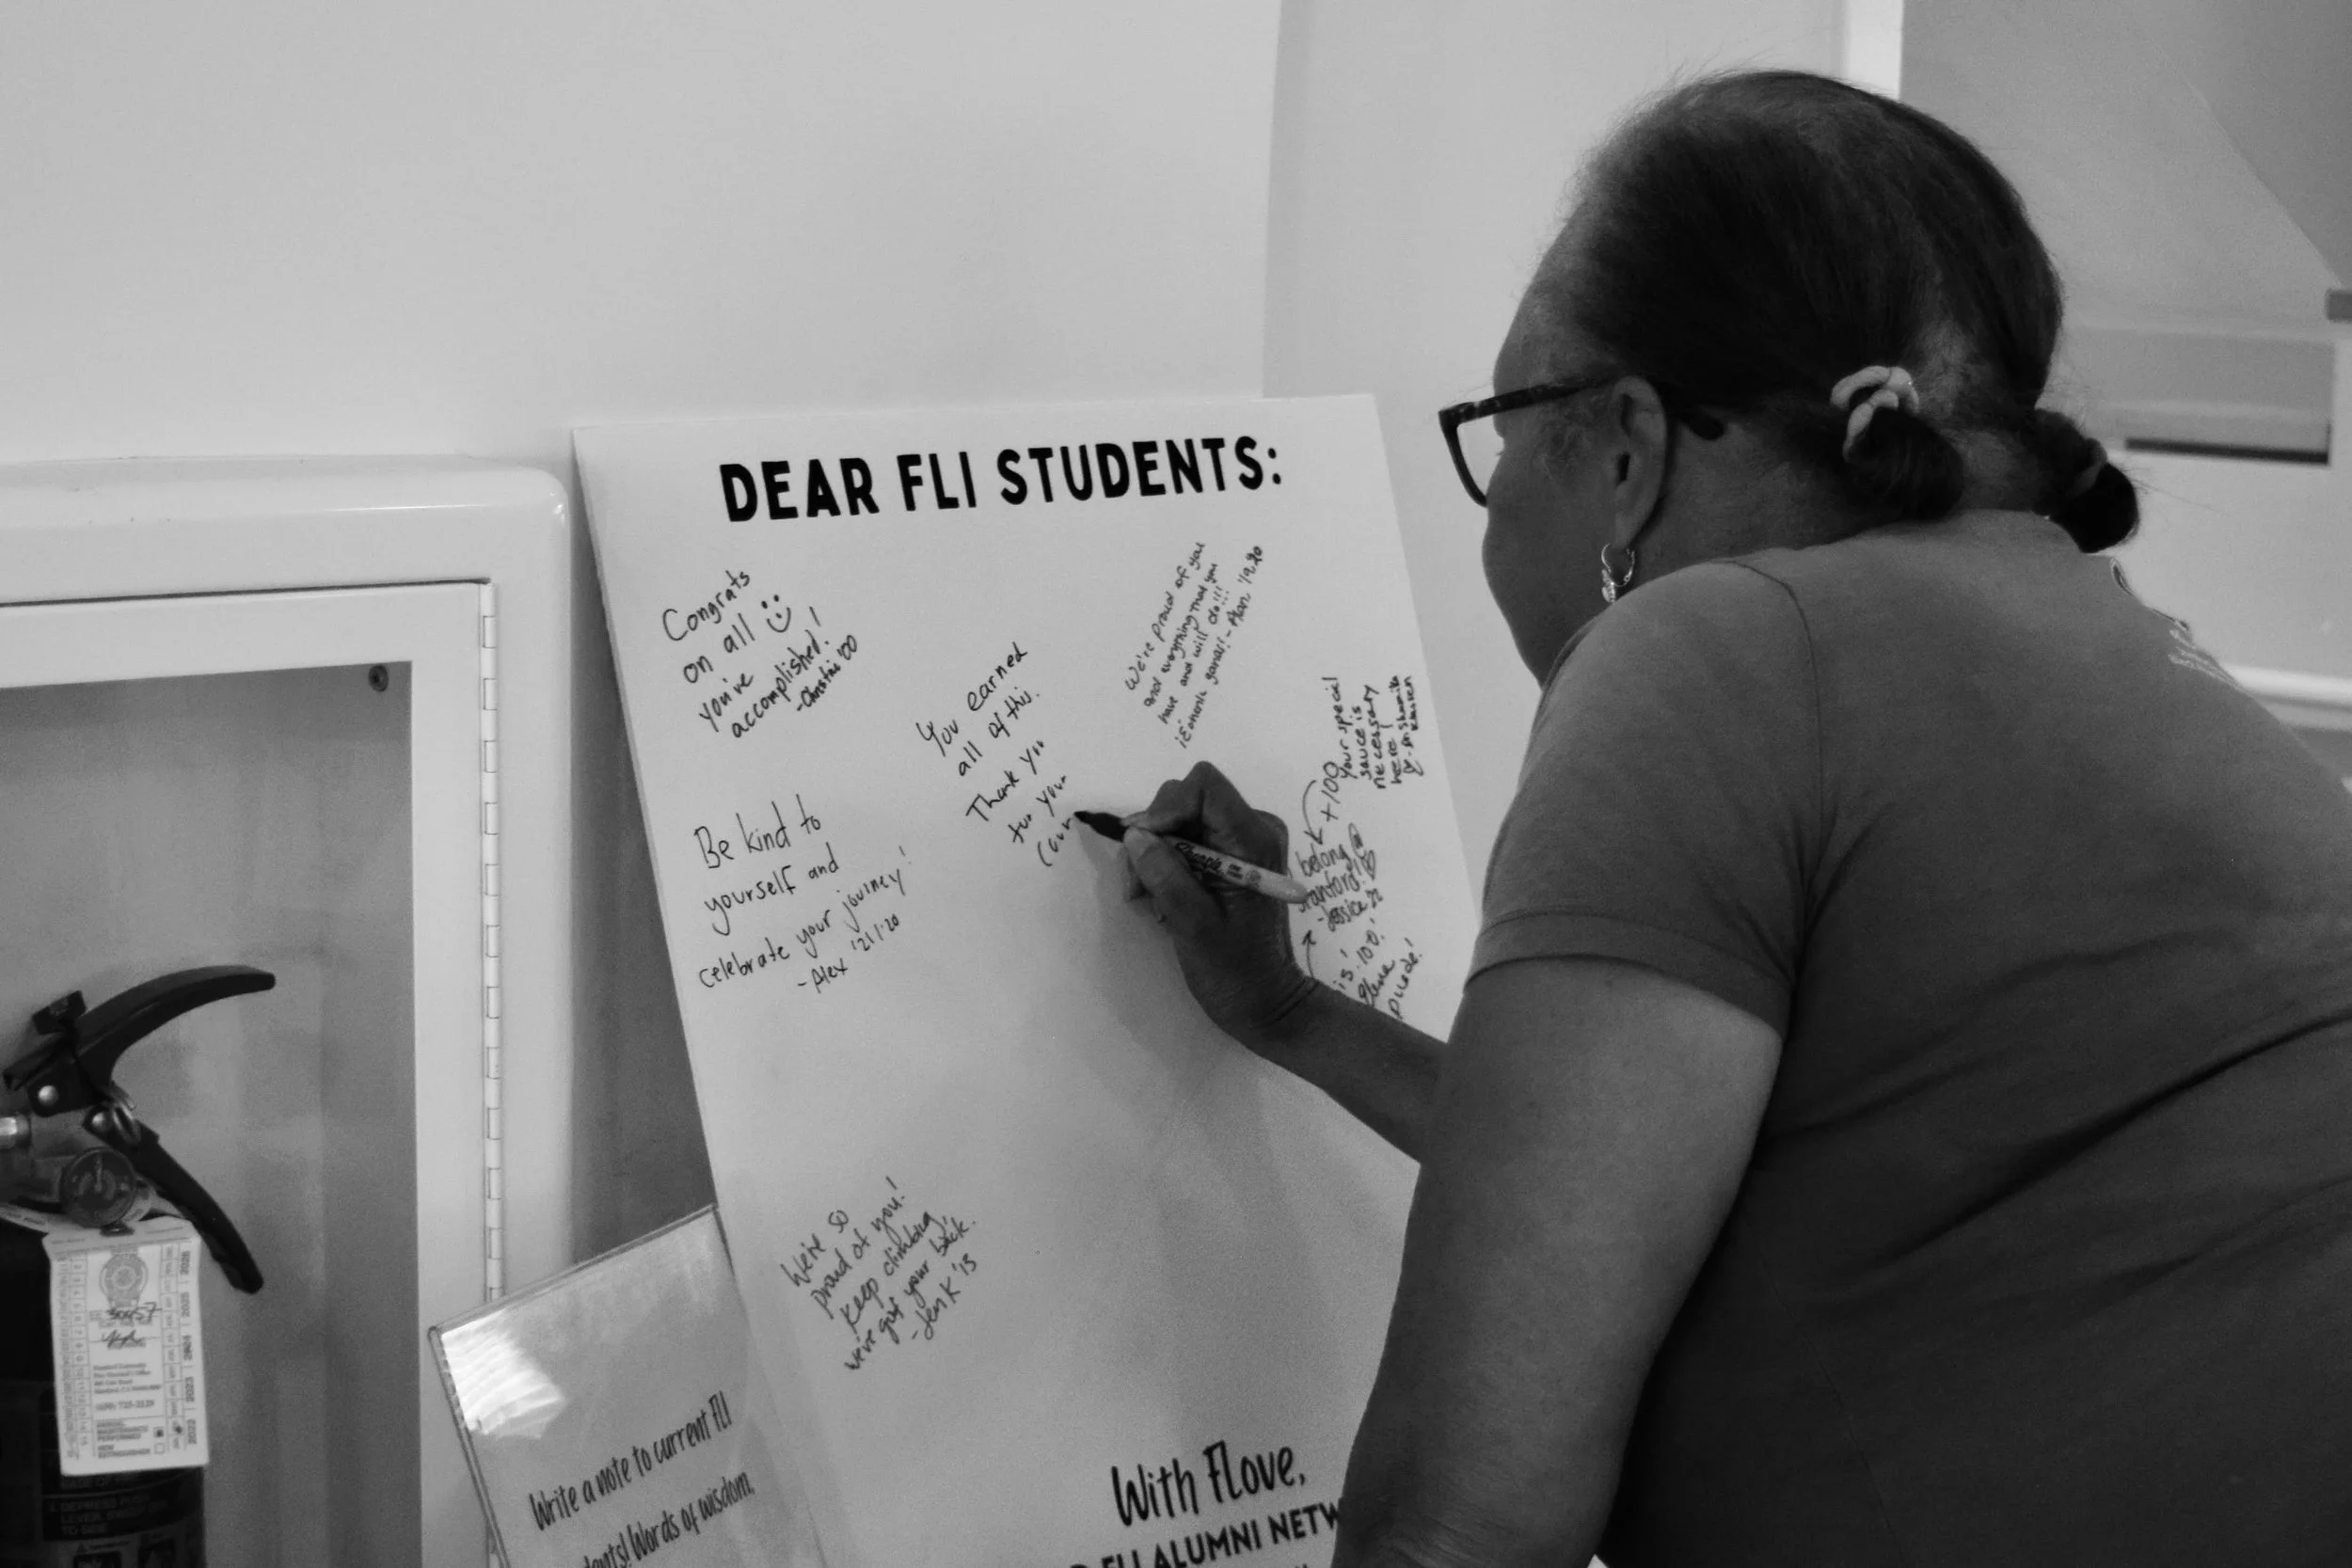 DEAR FLI STUDENTS:
Congrats
on all
you've
accomplished!
-Christina '00
You earned
all of this.
Thank you
for your
We're proud of you
and everything that you
have and will do!!!
- Alan '19, '20
+100
Your special
sauce is
necessary
here!
belong @
Stanford!
-Jessica
Be kind to
yourself and
celebrate your journey!
-Alex '21/'20
is! 100!
puede!
We're so
proud of you!
Keep climbing,
we've got your back.
-Jen K '13
With FLove,
FLI ALUMNI NETW
Write a note to current FLI
dents! Words of wisdom,
Sharpie
30457
2026
2025
2024
2023
2022